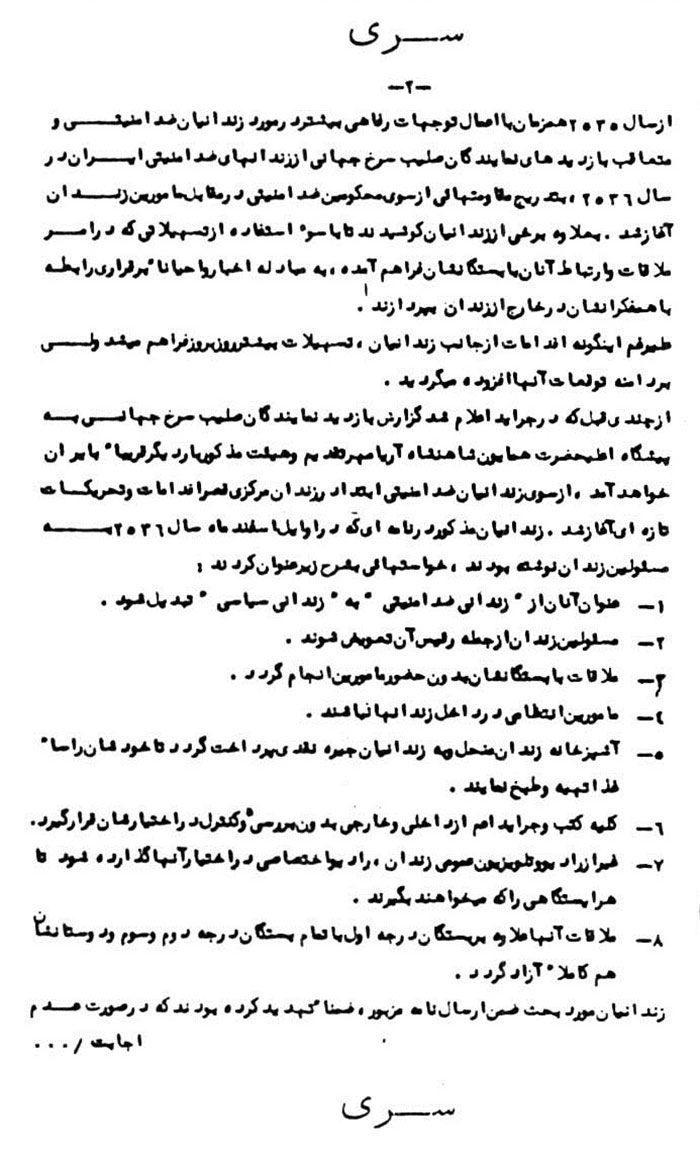 سری
-۲-
از سال ۲۵۳۵ همزمان با اعمال توجهات رفاهی بیشتر در مورد زندانیان ضد امنیتی و
متعاقب بازدیدهای نمایندگان صلیب سرخ جهانی از زندانهای ضد امنیتی ایران در
سال ۲۵۳۶، بتدریج مقاومتهائی از سوی محکومین ضد امنیتی در مقابل مامورین زندان
آغاز شد. بعلاوه برخی از زندانیان کوشیدند تا با سوء استفاده از تسهیلاتی که در امر
ملاقات وارتباط آنان با بستگانشان فراهم آمده، به مبادله اخبار واحیانا" برقراری رابطه
با همفکرانشان در خارج از زندان بپردازند.
علیرغم اینگونه اقدامات از جانب زندانیان، تسهیلات بیشتر روز بروز فراهم میشد ولی
بر دامنه توقعات آنها افزوده میگردید.
از چندی قبل که در جراید اعلام شد گزارش بازدید نمایندگان صلیب سرخ جهانی به
پیشگاه اعلیحضرت همایون شاهنشاه آریامهر تقدیم وهیئت مذکور بار دیگر قریبا" بایران
خواهد آمد، از سوی زندانیان ضد امنیتی ابتدا در زندان مرکزی قصر اقدامات وتحریکات
تازه ای آغاز شد. زندانیان مذکور در نامه ای که در اوایل اسفند ماه سال ۲۵۳۶ به
مسئولین زندان نوشته بودند، خواستهائی بشرح زیر عنوان کردند:
۱- عنوان آنان از "زندانی ضد امنیتی" به "زندانی سیاسی" تبدیل شود.
۲- مسئولین زندان از جمله رئیس آن تعویض شوند.
۳- ملاقات با بستگانشان بدون حضور مامورین انجام گردد.
٤- مامورین انتظامی در داخل زندانها نباشند.
۵- آشپزخانه زندان منحل وبه زندانیان جیره نقدی پرداخت گردد تا خودشان راسا"
غذا تهیه وطبخ نمایند.
۶- کلیه کتب وجراید اعم از داخلی وخارجی بدون بررسی وکنترل در اختیارشان قرار گیرد.
۷- غیر از رادیو و تلویزیون عمومی زندان، رادیو اختصاصی در اختیار آنها گذارده شود تا
هر ایستگاهی را که میخواهند بگیرند.
۸- ملاقات آنها علاوه بر بستگان درجه اول با تمام بستگان درجه دوم وسوم ودوستانشان
هم کاملا" آزاد گردد.
زندانیان مورد بحث ضمن ارسال نامه مزبور، ضمنا" تهدید کرده بودند که در صورت عدم
اجابت /...
سری